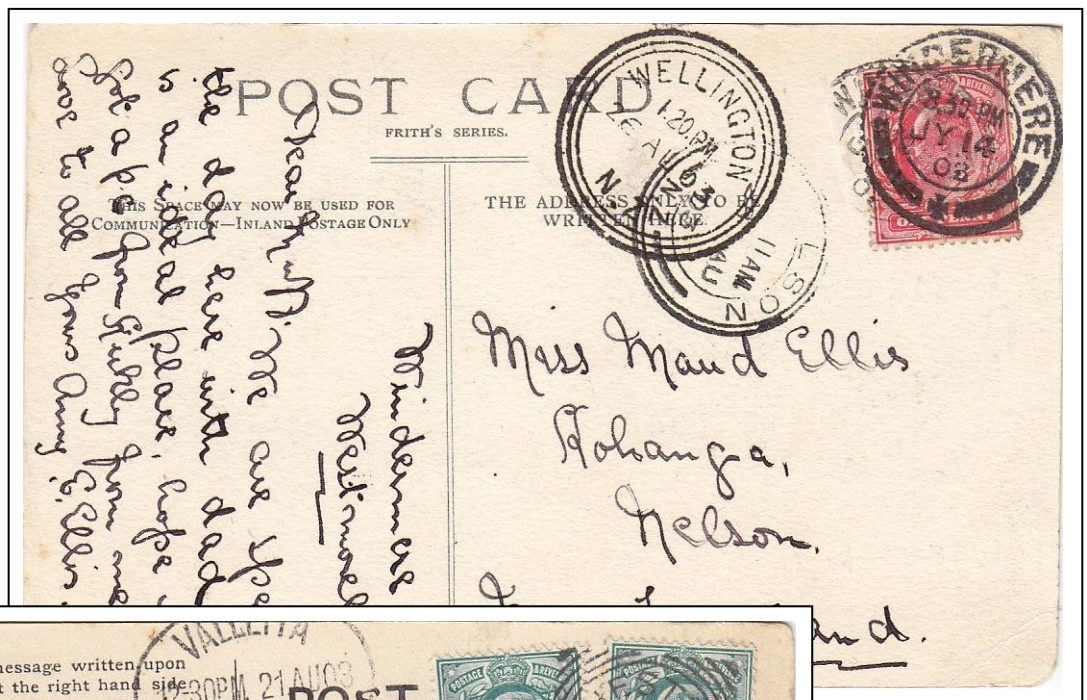 POST CARD
FRITH'S SERIES.
THIS SPACE MAY NOW BE USED FOR
COMMUNICATION—INLAND POSTAGE ONLY
THE ADDRESS ONLY TO BE
WRITTEN HERE.
WELLINGTON
1.20.PM
26 AU 03
N
NELSON
11 AM
AU
WINDERMERE
8.30 PM
JY 14
03
POSTAGE & REVENUE
Windermere
Westmorel
Dear We are spe
the day here with dad
is an ideal place. hope
Got a p.c. from from me
love to all Yours Amy E. Ellis
Miss Maud Ellis
Kohanga,
Nelson.
and.
VALLETTA
12.30PM 21 AU 03
essage written upon
t the right hand side
POST
POSTAGE & REVENUE
POSTAGE